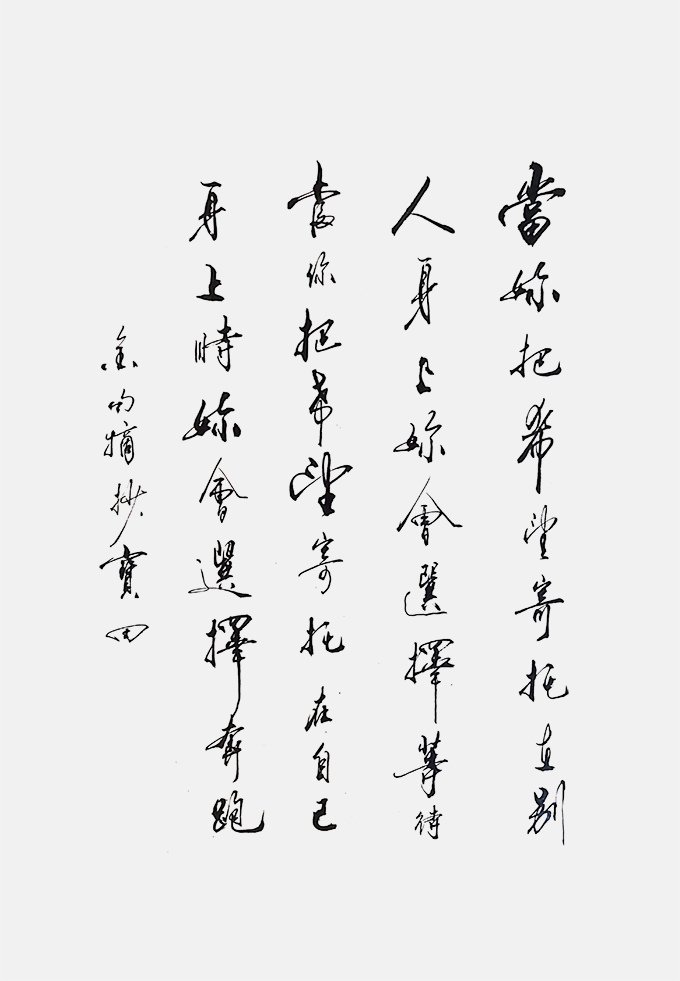 當妳把希望寄托在別
人身上妳會選擇等待
當你把希望寄托在自己
身上時妳會選擇奔跑
金句摘抄寶田